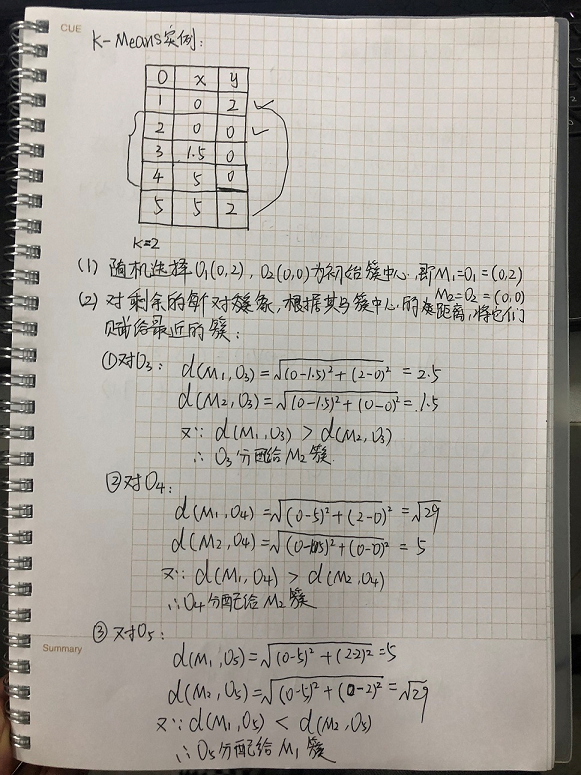 CUE
K-Means实例:
O x y
1 0 2 ✓
2 0 0 ✓
3 1.5 0
4 5 0
5 5 2
K=2
(1) 随机选择O₁(0,2), O₂(0,0)为初始簇中心,即M₁=O₁=(0,2)
M₂=O₂=(0,0)
(2) 对剩余的每个对象,根据其与簇中心的距离,将它们
赋给最近的簇:
①对O₃: d(M₁,O₃)=√(0-1.5)²+(2-0)² = 2.5
d(M₂,O₃)=√(0-1.5)²+(0-0)² = 1.5
又∵ d(M₁,O₃) > d(M₂,O₃)
∴ O₃分配给M₂簇.
②对O₄:
d(M₁,O₄)=√(0-5)²+(2-0)² = √29
d(M₂,O₄)=√(0-5)²+(0-0)² = 5
又∵ d(M₁,O₄) > d(M₂,O₄)
∴O₄分配给M₂簇
③对O₅:
Summary
d(M₁,O₅)=√(0-5)²+(2-2)² =5
d(M₂,O₅)=√(0-5)²+(0-2)² =√29
又∵ d(M₁,O₅) < d(M₂,O₅)
∴O₅分配给M₁簇